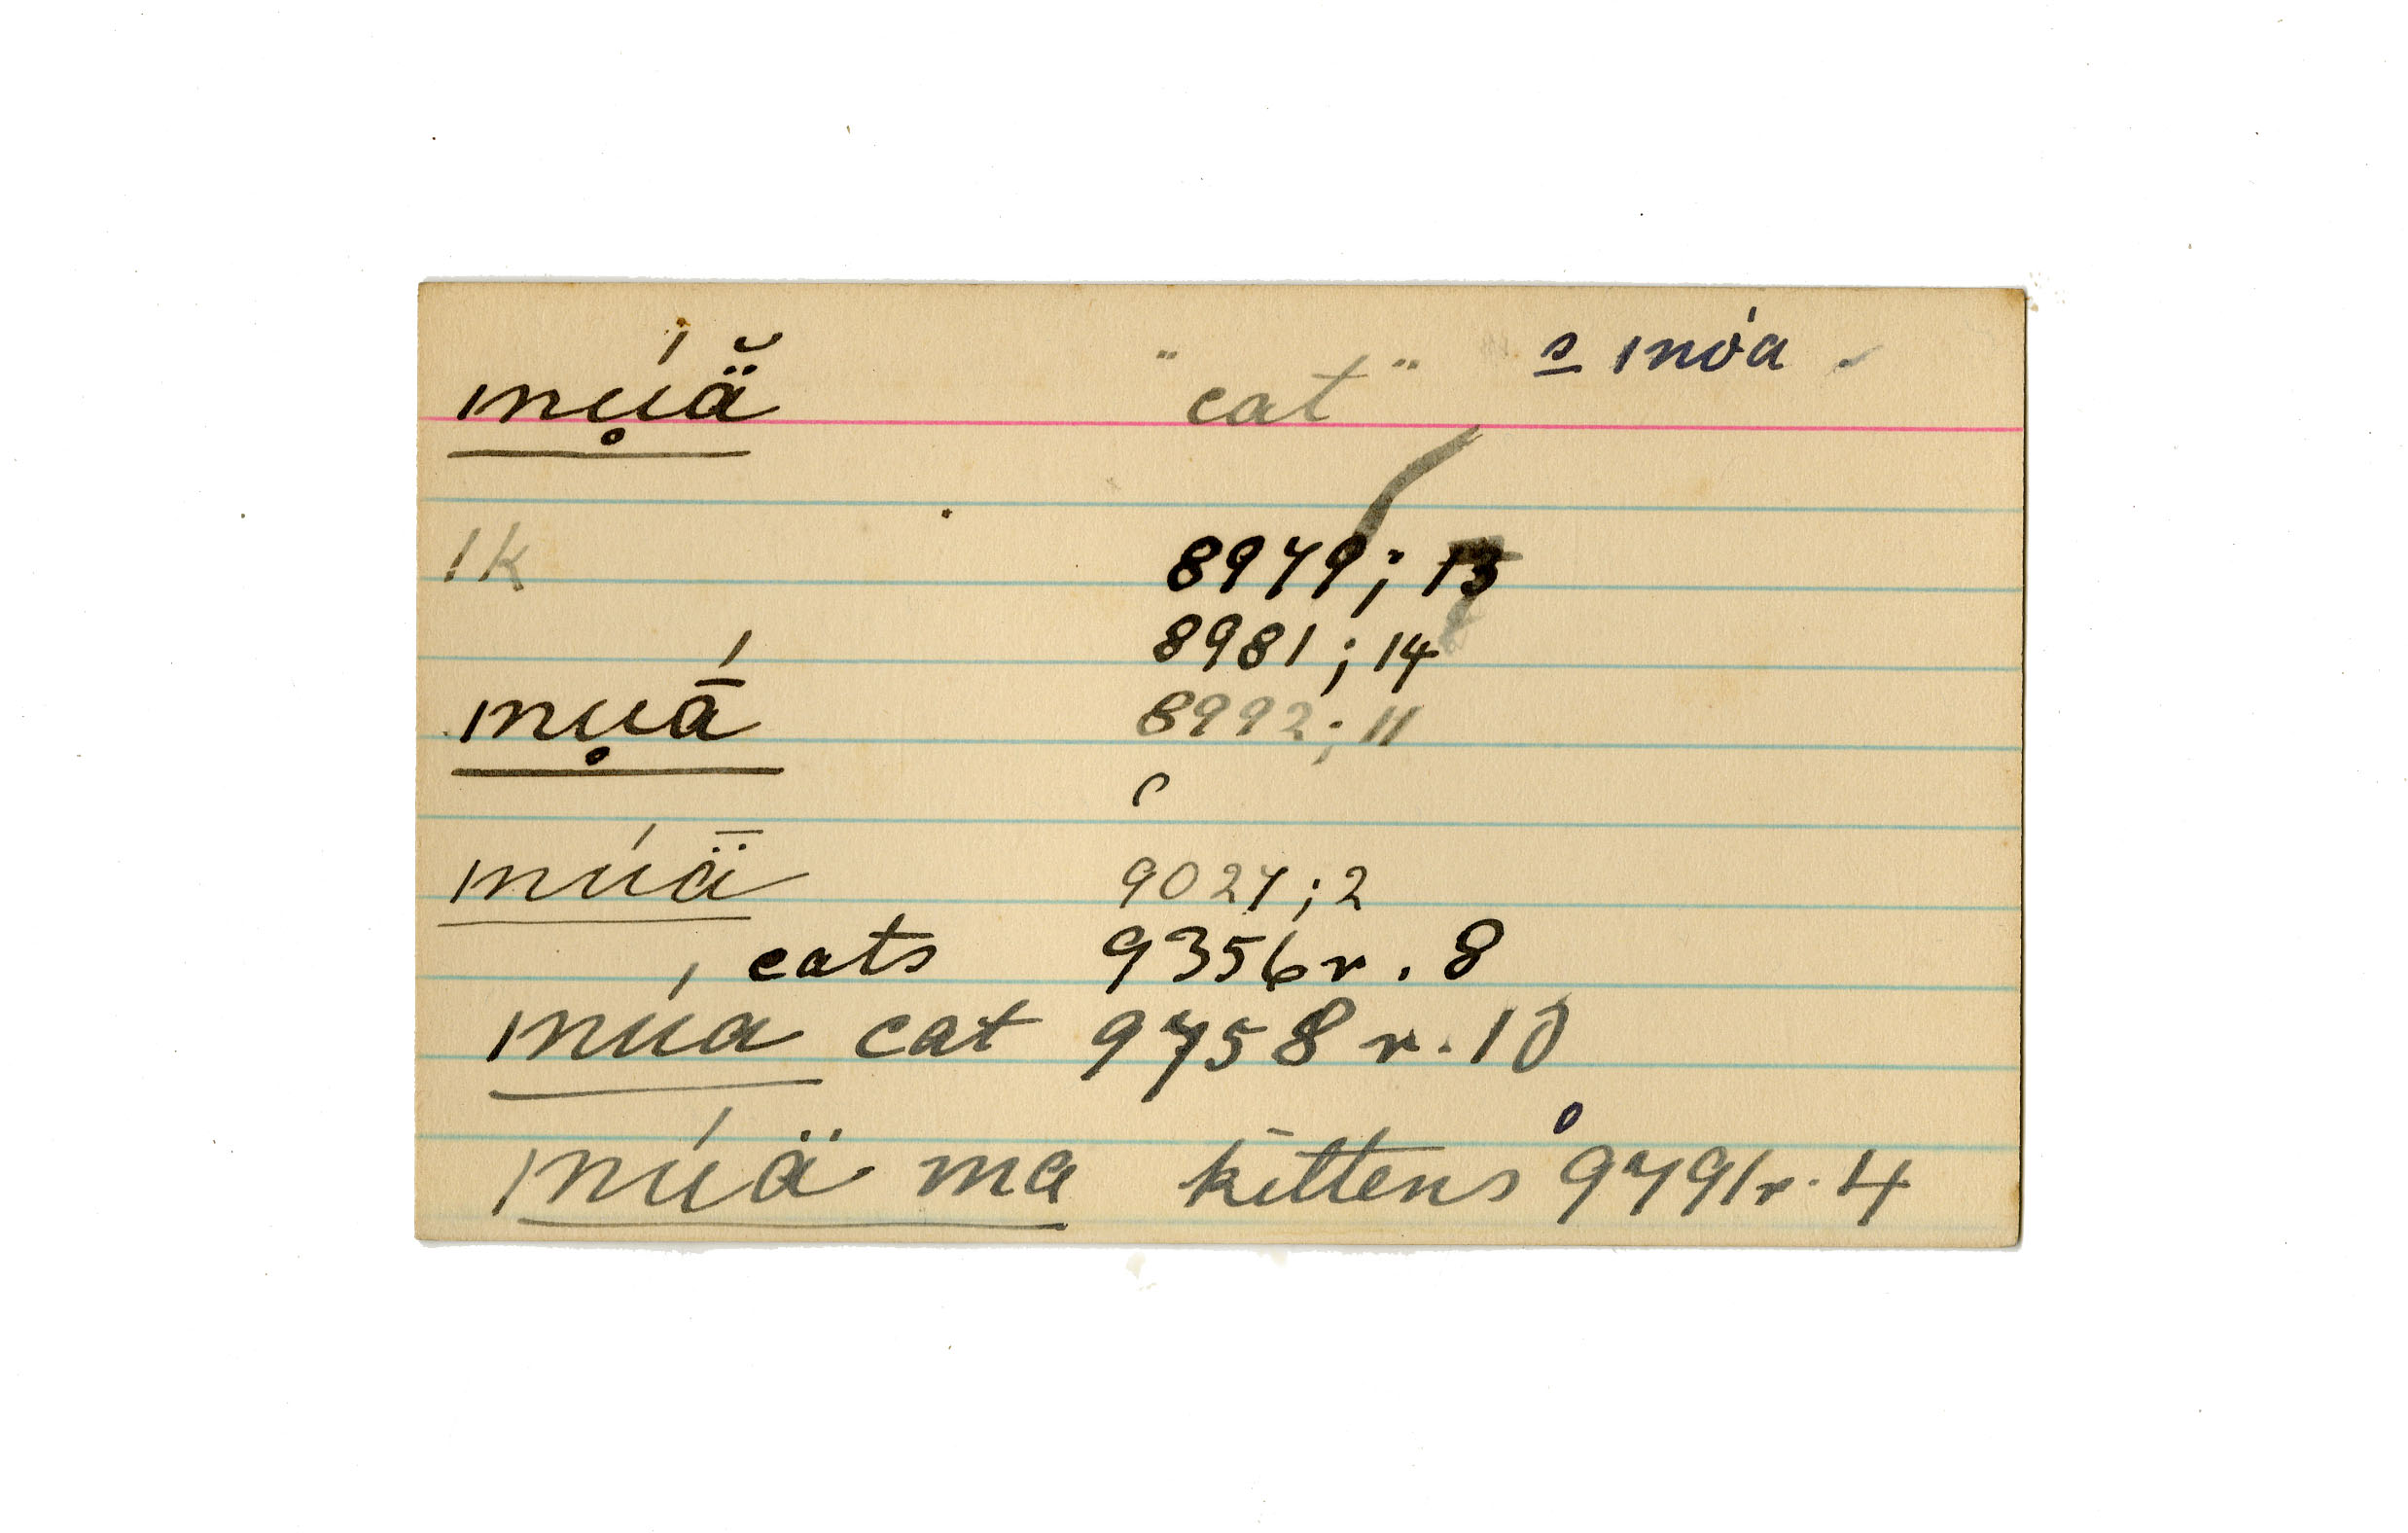 mų́ä̆ "cat" s móa
1k 8979; 13
8981; 14
mųā́ 8992; 11
múǟ 9027; 2
cats 9356r. 8
múa cat 9758r. 10
múä ma kittens 9791r. 4